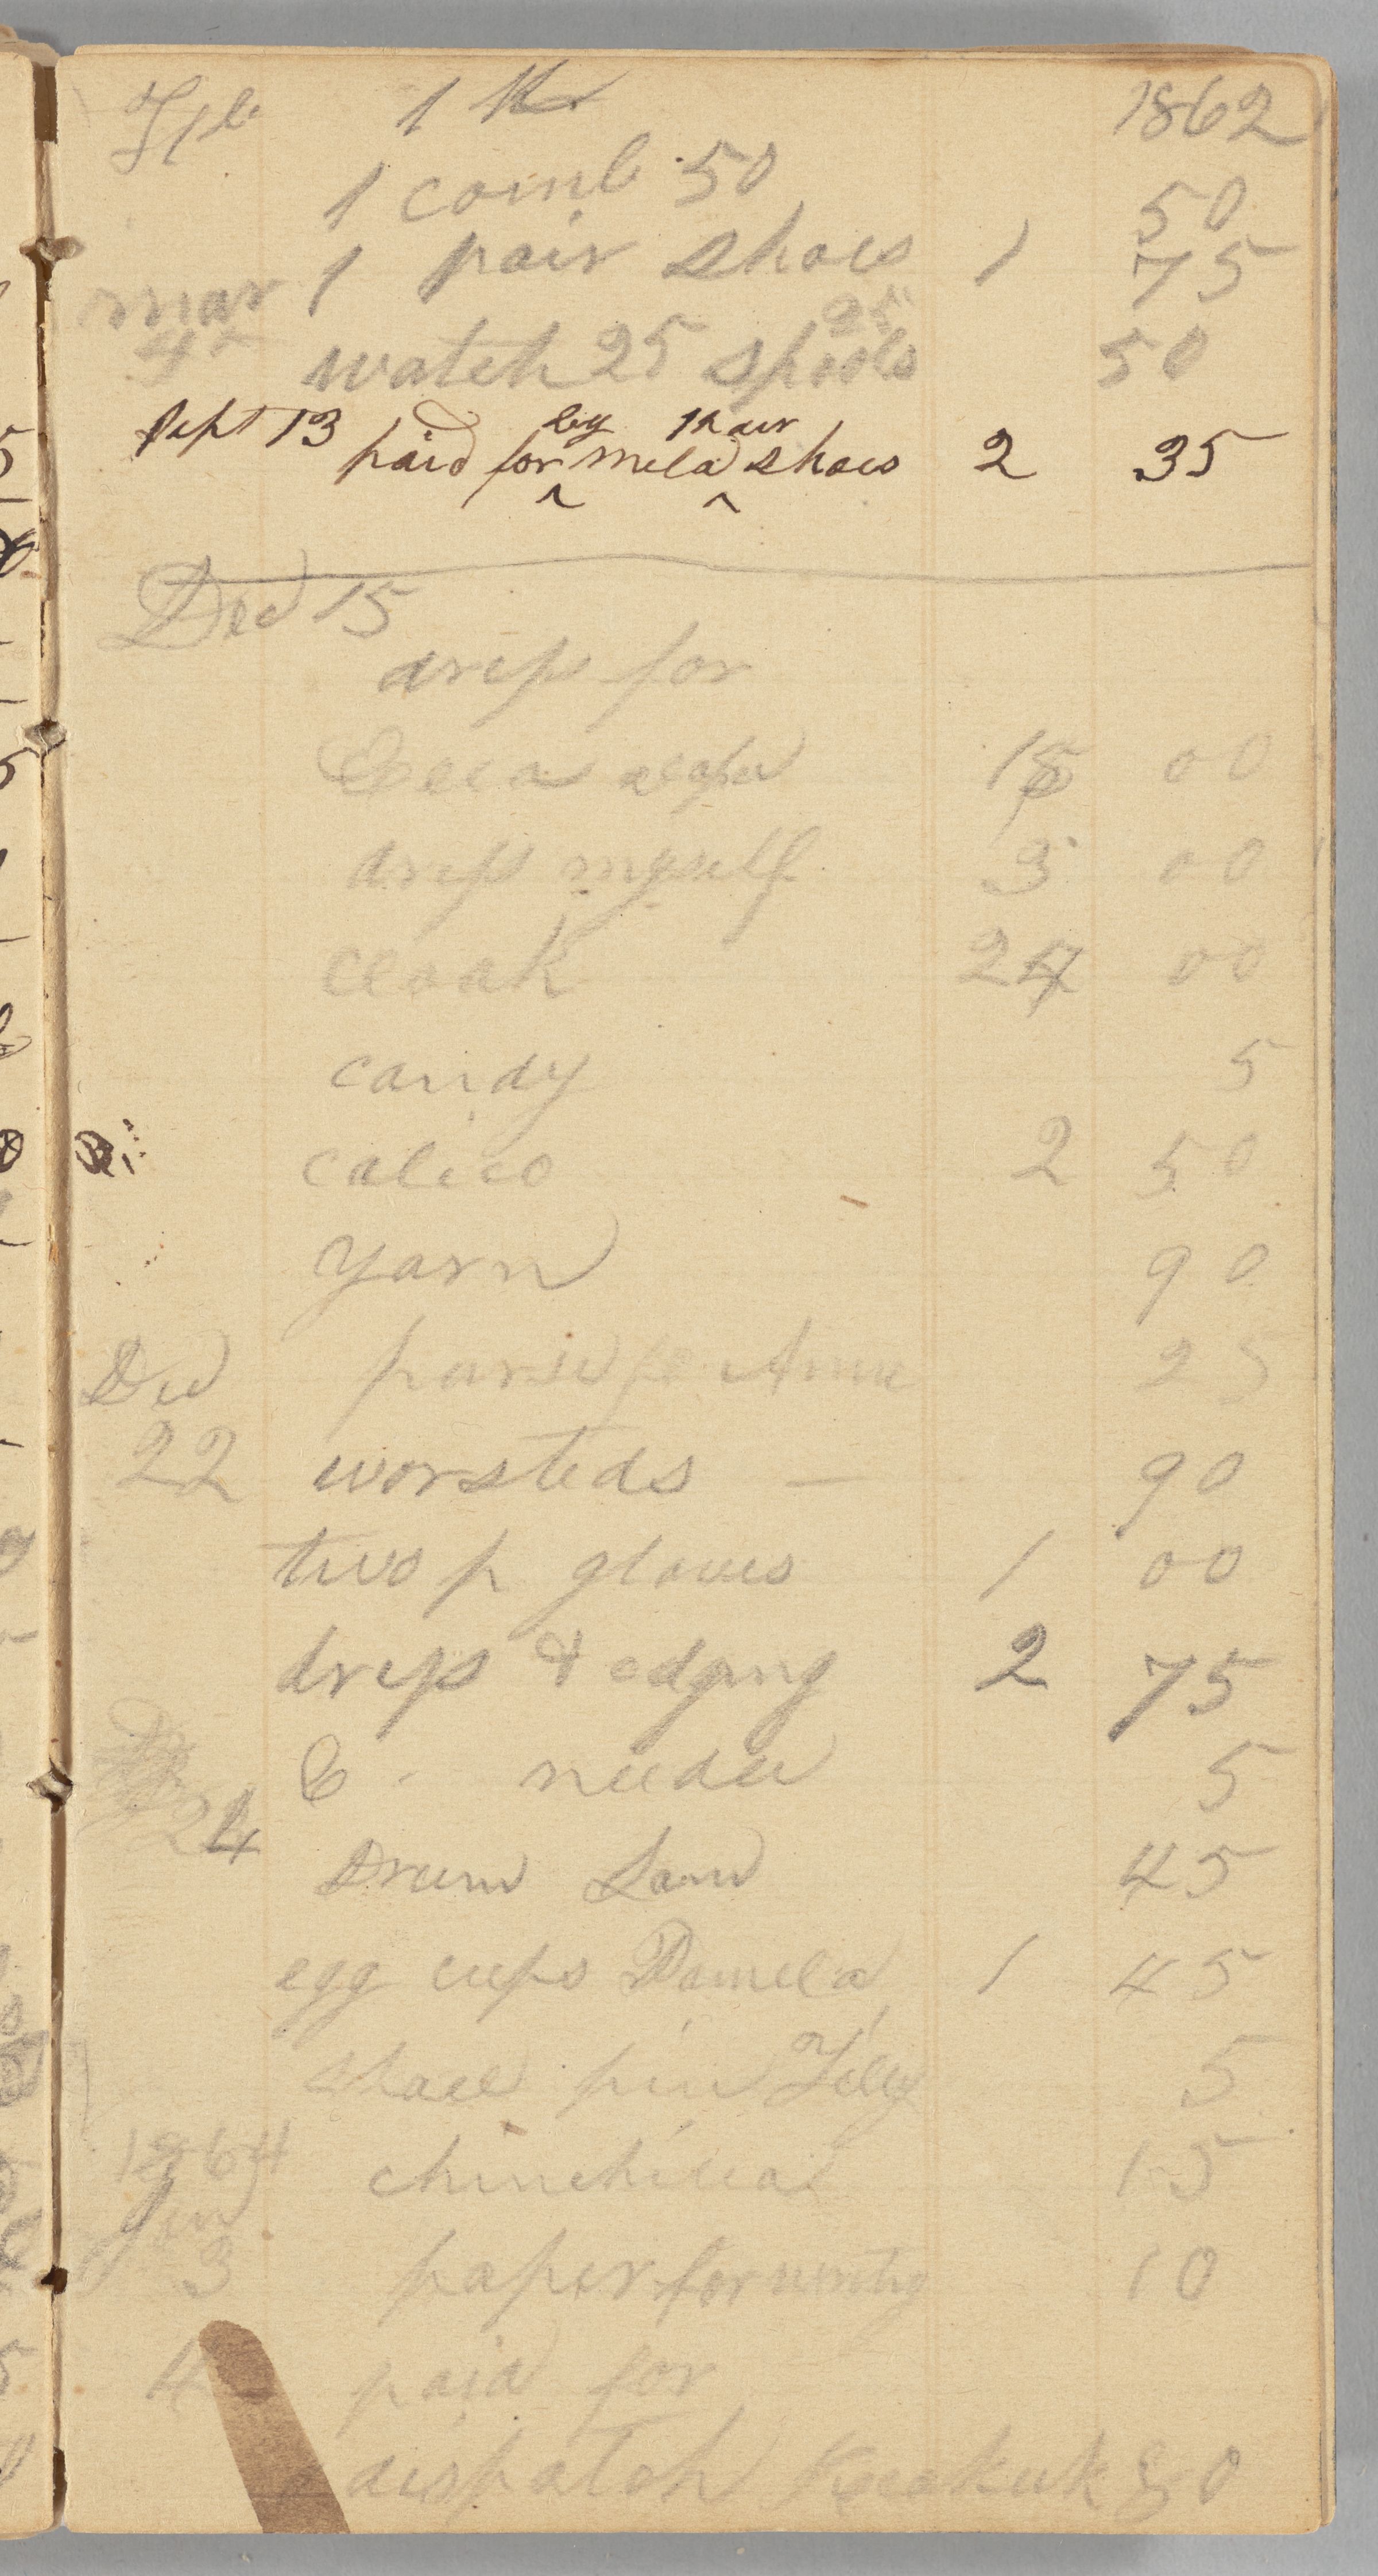 Feb 1862
1 comb 50 50
1 pair shoes 1 75
mar
4 watch 25 spools 25 50
Sept 13 paid for by Mela 1 pair shoes 2 35
Dec 15
dress for
Ella 15 00
dress myself 3 00
cloak 24 00
candy 5
calico 2 50
yarn 90
Dec purse for Anna 25
22 worsteds — 90
two p gloves 1 00
dress & edging 2 75
24 C. needle 5
Drum Sam 45
egg cups Pamela 1 45
shall pin 5
1864 chinchilla 15
Jan
3 paper for writing 10
4 paid for
dispatch Keokuk 80